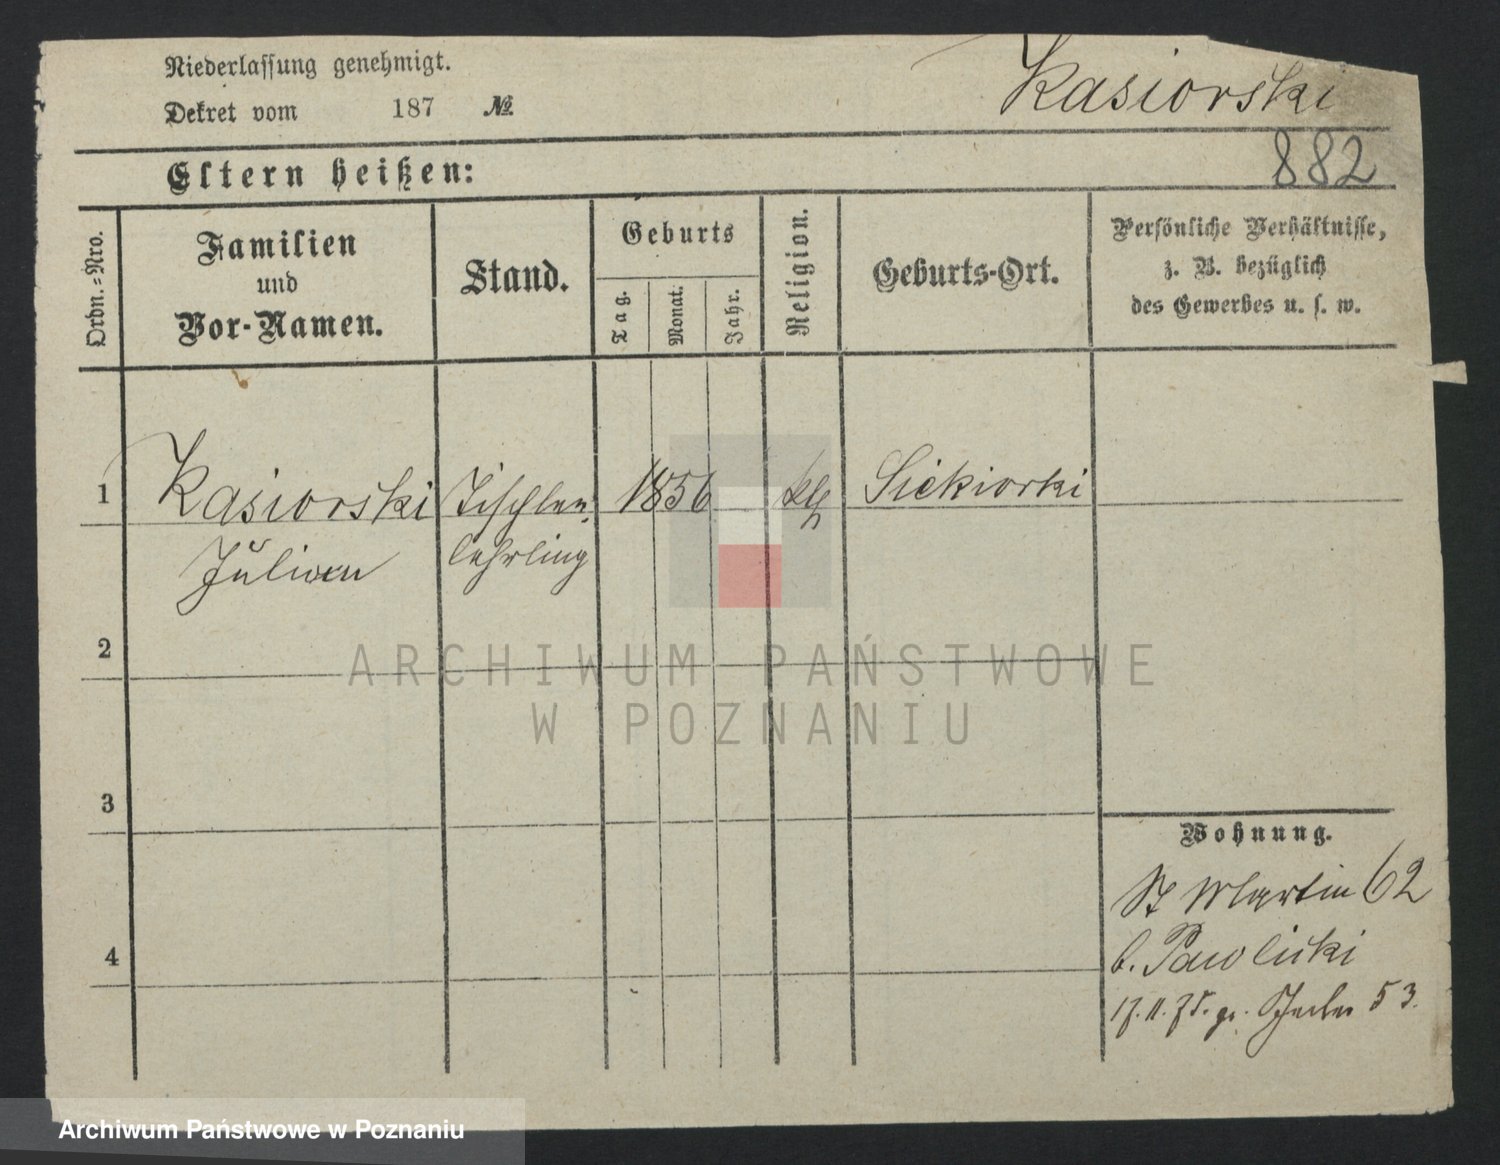 Niederlassung genehmigt.
Dekret vom 187 №
Kasiorski
882
Eltern heißen:
Ordn.-Nro.
Familien
und
Vor-Namen.
Stand.
Geburts
Tag.
Monat.
Jahr.
Religion.
Geburts-Ort.
Persönliche Verhältnisse,
z. B. bezüglich
des Gewerbes u. s. w.
1 Kasiorski Tischler 1856 kth Siekiorki
Julian lehrling
2
3
4
Wohnung.
St Martin 62
b. Pawlicki
17.11.75. gr. 53.
ARCHIWUM PAŃSTWOWE
W POZNANIU
Archiwum Państwowe w Poznaniu